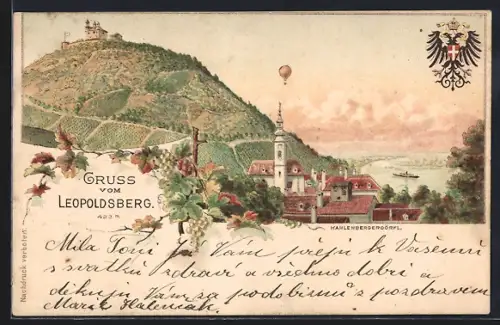 GRUSS
VOM
LEOPOLDSBERG.
423 M.
KAHLENBERGERDÖRFL.
Nachdruck verboten!
Mila Toni Ja Vám přeju k Vašemu
s svatku zdravi a vsechno dobri a
dekuju Vám za podobirnu s pozdravem
Marie